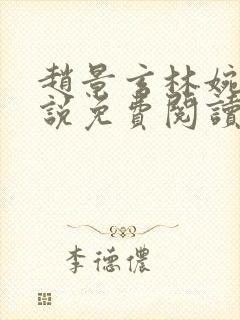 趙景言林婉
說免費閱讀
李德儂